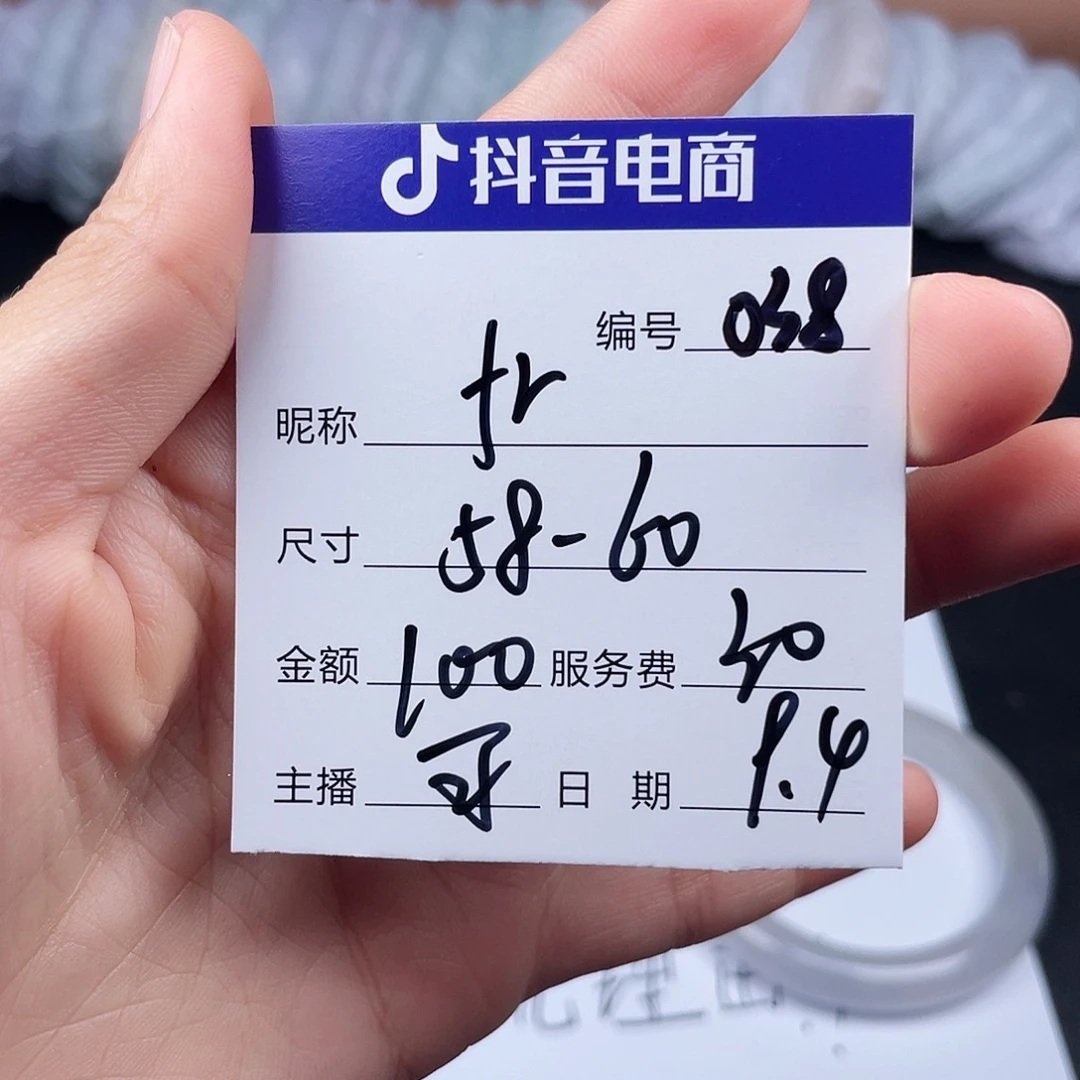 抖音电商
编号 038
昵称 fr
尺寸 58-60
金额 100 服务费 50
主播 日 期 9.4